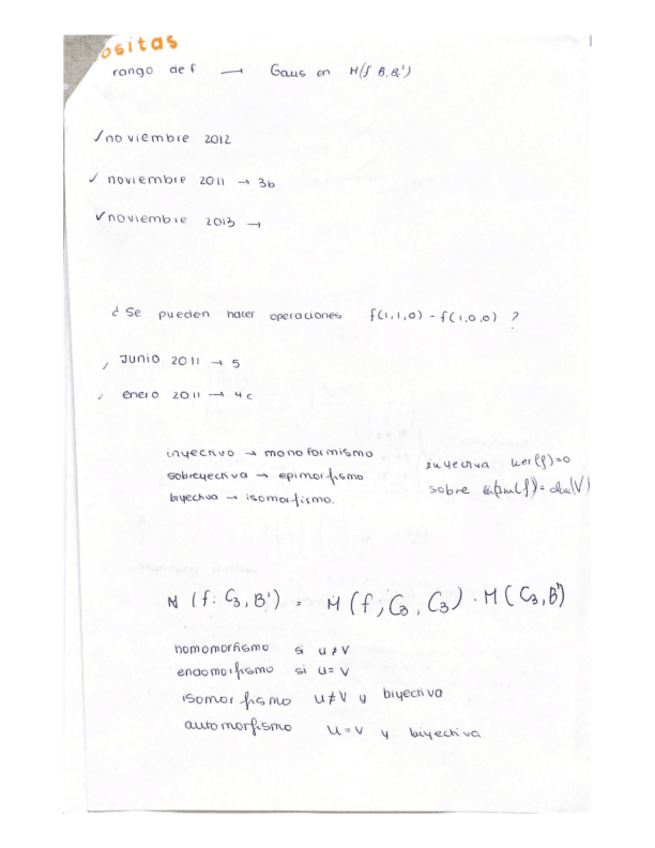 ositas
rango de f → Gaus en M(f B,B')
✓noviembre 2012
✓ noviembre 2011 → 3b
✓noviembre 2013 →
¿ Se pueden hacer operaciones f(1,1,0) - f(1,0,0) ?
, Junio 2011 → 5
, enero 2011 → 4c
inyectivo → monoformismo
sobreyectiva → epimorfismo
biyectiva → isomorfismo.
inyectiva ker(f)=0
sobre dim(f)=dim(V)
M (f: C3, B') = M (f; C3, C3) · M(C3, B')
homomorfismo si u ≠ V
endomorfismo si u= V
isomorfismo u≠V y biyectiva
automorfismo u=v y biyectiva